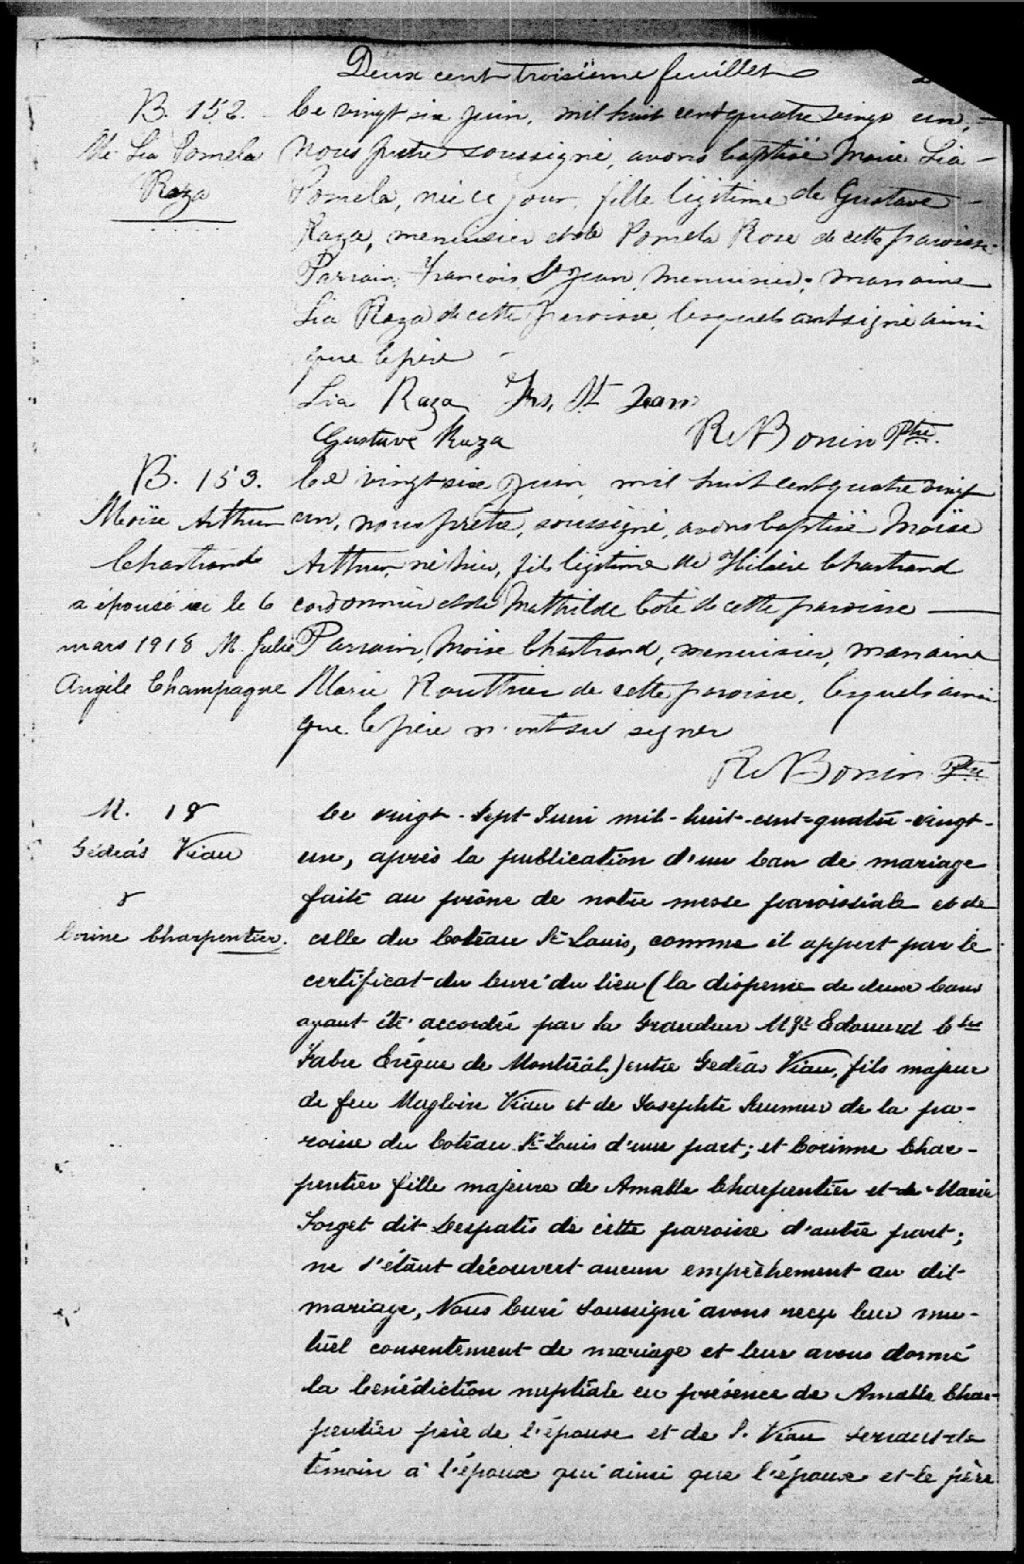 Deux cent troisième feuillet
B. 152.
Me Lia Pomela
Raza
Le vingt six Juin, mil huit cent quatre vingt un,
Nous prêtre soussigné, avons baptisé Marie Lia
Pomela, née ce jour, fille légitime de Gustave
Raza, menuisier et de Pomela Rose de cette paroisse.
Parrain, François St Jean, menuisier, marraine
Lia Raza de cette paroisse, lesquels ont signé ainsi
que le père
Lia Raza Frs, St Jean
Gustave Raza R Bonin Ptre.
B. 153.
Moïse Arthur
Chartrand
a épousé ici le 6
mars 1918 M. Julie
Angile Champagne
Le vingt six Juin, mil huit cent quatre vingt
un, nous prêtre, soussigné, avons baptisé Moïse
Arthur, né hier, fils légitime de Hilaire Chartrand
cordonnier et de Mathilde Cote de cette paroisse
Parrain, Moise Chartrand, menuisier, marraine
Marie Routhier de cette paroisse, lesquels ainsi
que le père n'ont su signer
R Bonin Ptre
M. 18
Gédéas Viau
&
Corine Charpentier.
Le vingt-sept Juin mil-huit-cent-quatre-vingt-
un, après la publication d'un ban de mariage
faite au prône de notre messe paroissiale et de
celle du Coteau St Louis, comme il appert par le
certificat du Curé du lieu (la dispense de deux bans
ayant été accordée par Sa Grandeur Mgr Edouard Chs
Fabre Evêque de Montréal) entre Gédéas Viau, fils majeur
de feu Magloire Viau et de Josephte de la pa-
roisse du Coteau St Louis d'une part; et Corinne Char-
pentier fille majeure de Amable Charpentier et de Marie
Forget dit Despatis de cette paroisse d'autre part;
ne s'étant découvert aucun empêchement au dit
mariage, Nous Curé soussigné avons reçu leur mu-
tuel consentement de mariage et leur avons donné
la bénédiction nuptiale en présence de Amable Char-
pentier père de l'épouse et de S. Viau servant de
témoin à l'époux qui ainsi que l'époux et le père